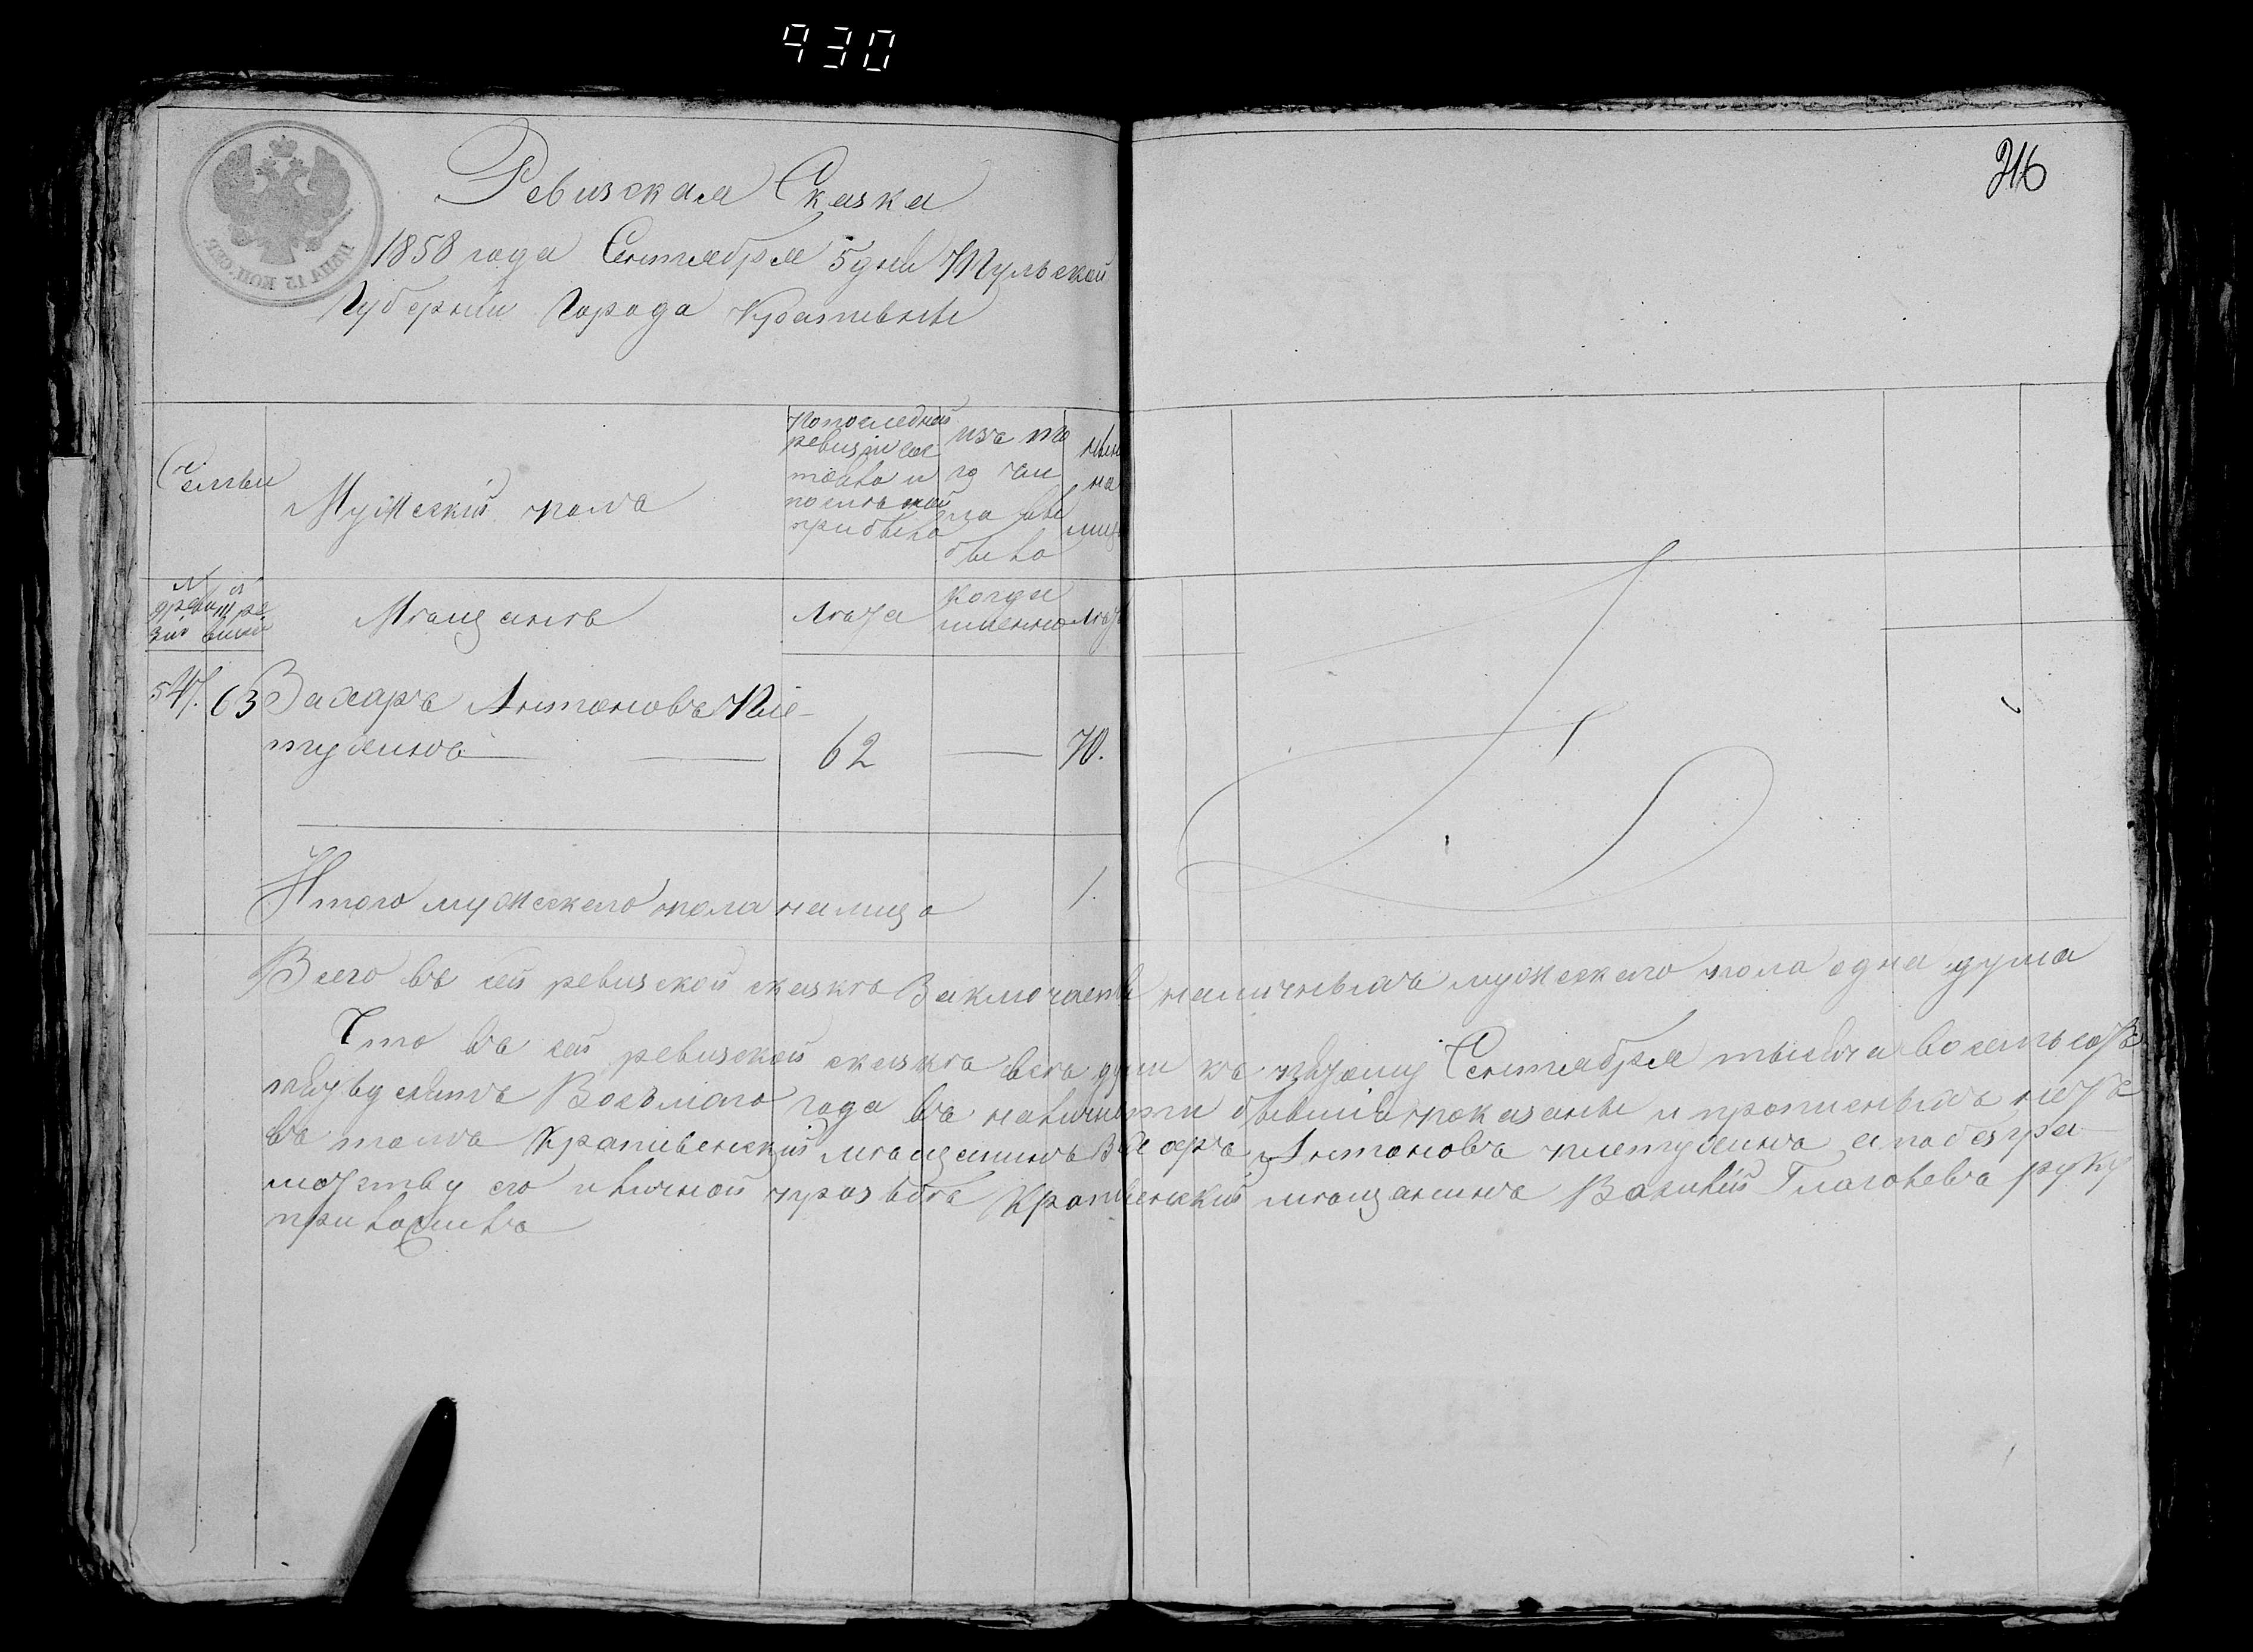 930
216
Ревизская Сказка
1858 года Сентября 5 дня Тульской
Губернии Города Крапивны
ЦѢНА 15 КОП. СЕР.
Семьи
Мужескій полъ
По последней
ревизіи сос
тояло и
после той
прибыло
изъ то
го чис
ла вы
было
ныне
на
лицо
№
Мещане
Лета
Когда
именно
Лета
54. 63 Захаръ Антоновъ Пле-
тухинъ 62 — 70.
Итого мужескаго пола налицо 1.
Всего въ сей ревизской сказке Заключается наличныхъ мужескаго пола одна душа
Что въ сей ревизской сказке все души къ Сентября тысяча восемь сотъ
пятьдесятъ Восьмаго года въ наличности бывшія показаны и прописныхъ нетъ
въ томъ Крапивенскій мещанинъ Захаръ Антоновъ Плетухинъ а по безгра
мотству его и личной прозьбе Крапивенскій мещанинъ Василій Глаголевъ руку
приложилъ